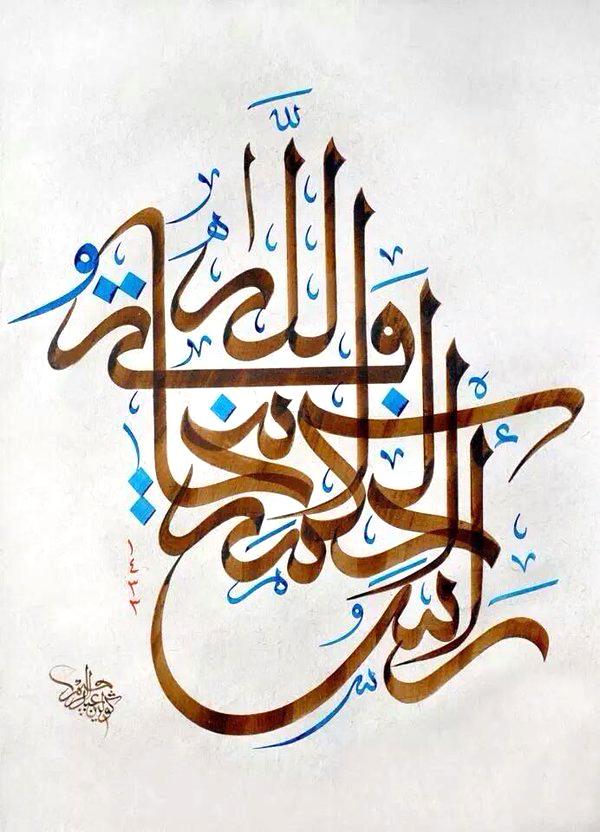 رأس الحكمة مخافة الله
١٤٣٣